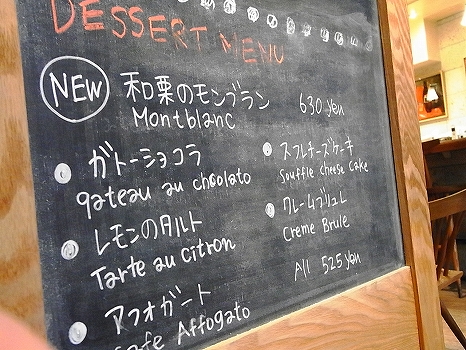 DESSERT MENU
NEW 和栗のモンブラン 630 yen
Montblanc
ガトーショコラ
gateau au chcolato
レモンのタルト
Tarte au citron
アフォガート
Cafe Affogato
スフレチーズケーキ
Souffle cheese cake
クレームブリュレ
Creme Brule
All 525 yen